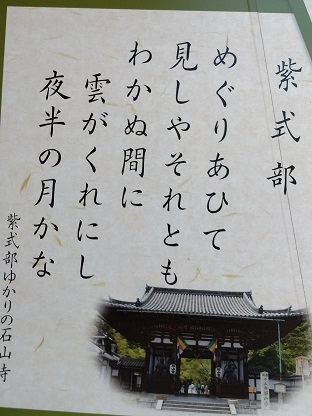 紫式部
めぐりあひて
見しやそれとも
わかぬ間に
雲がくれにし
夜半の月かな
紫式部ゆかりの石山寺